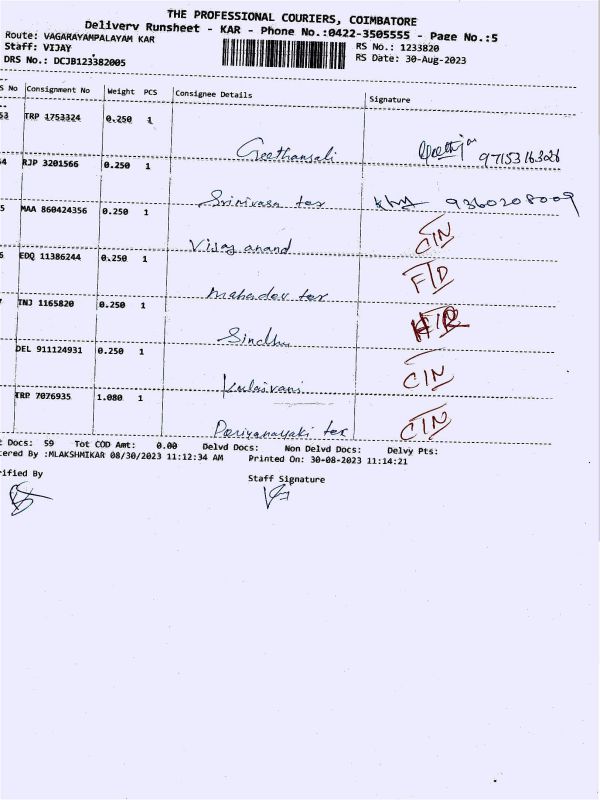 THE PROFESSIONAL COURIERS, COIMBATORE
Delivery Runsheet - KAR - Phone No.:0422-3505555 - Page No.:5
Route: VAGARAYAMPALAYAM KAR
RS No.: 1233820
Staff: VIJAY
RS Date: 30-Aug-2023
DRS No.: DCJB123382005
S No Consignment No Weight PCS Consignee Details Signature
53 TRP 1753324 0.250 1
Geethanjali 9715316326
4 RJP 3201566 0.250 1
Srinivasa tex 9360208009
5 MAA 860424356 0.250 1
Vijay anand CIN
6 EDQ 11386244 0.250 1
Mahadev tex FTD
TNJ 1165820 0.250 1
Sindhu
DEL 911124931 0.250 1
Kalaivani CIN
TRP 7076935 1.080 1
Periyanayaki tex CIN
t Docs: 59 Tot COD Amt: 0.00 Delvd Docs: Non Delvd Docs: Delvy Pts:
tered By :MLAKSHMIKAR 08/30/2023 11:12:34 AM Printed On: 30-08-2023 11:14:21
rified By
Staff Signature